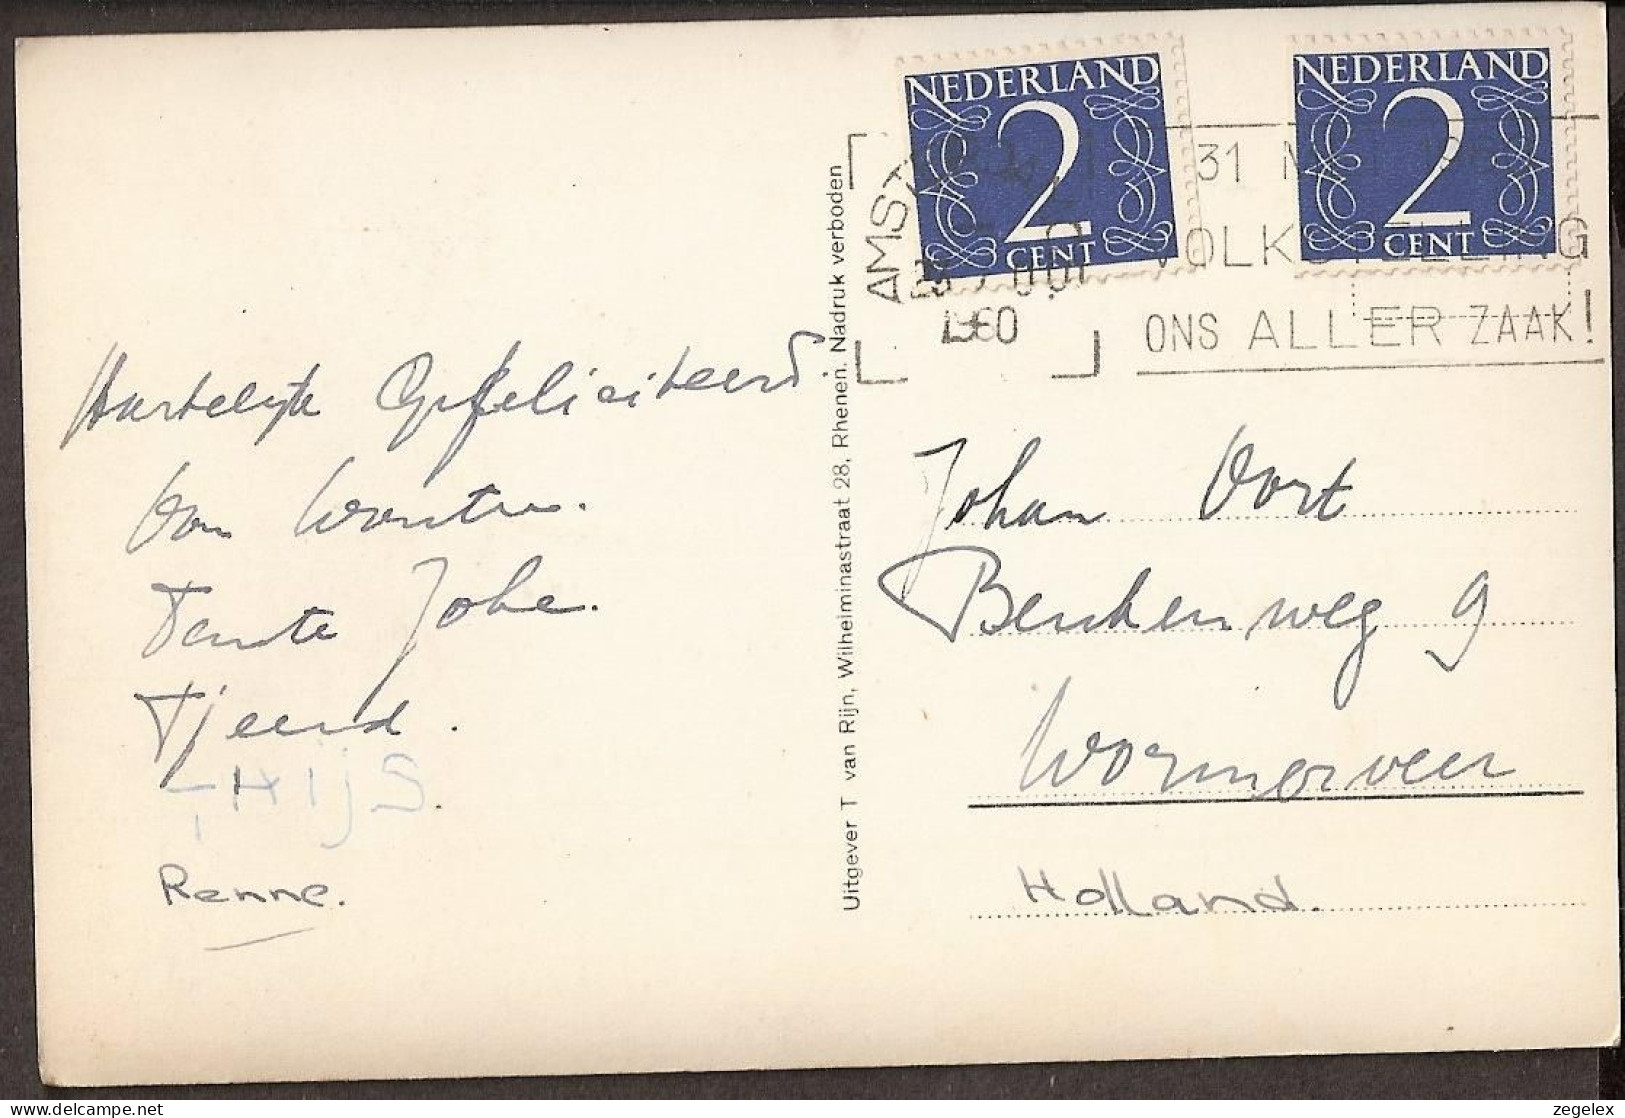 NEDERLAND
2
CENT
NEDERLAND
2
CENT
31
VOLKSTELLING
ONS ALLER ZAAK!
1960
Hartelijk Gefeliciteerd.
Van Wouter.
Tante Joke.
Tjeerd.
THIJS.
Renne.
Uitgever T van Rijn, Wilhelminastraat 28, Rhenen. Nadruk verboden
Johan Oort
weg 9
Wormerveer
Holland.
zegelex